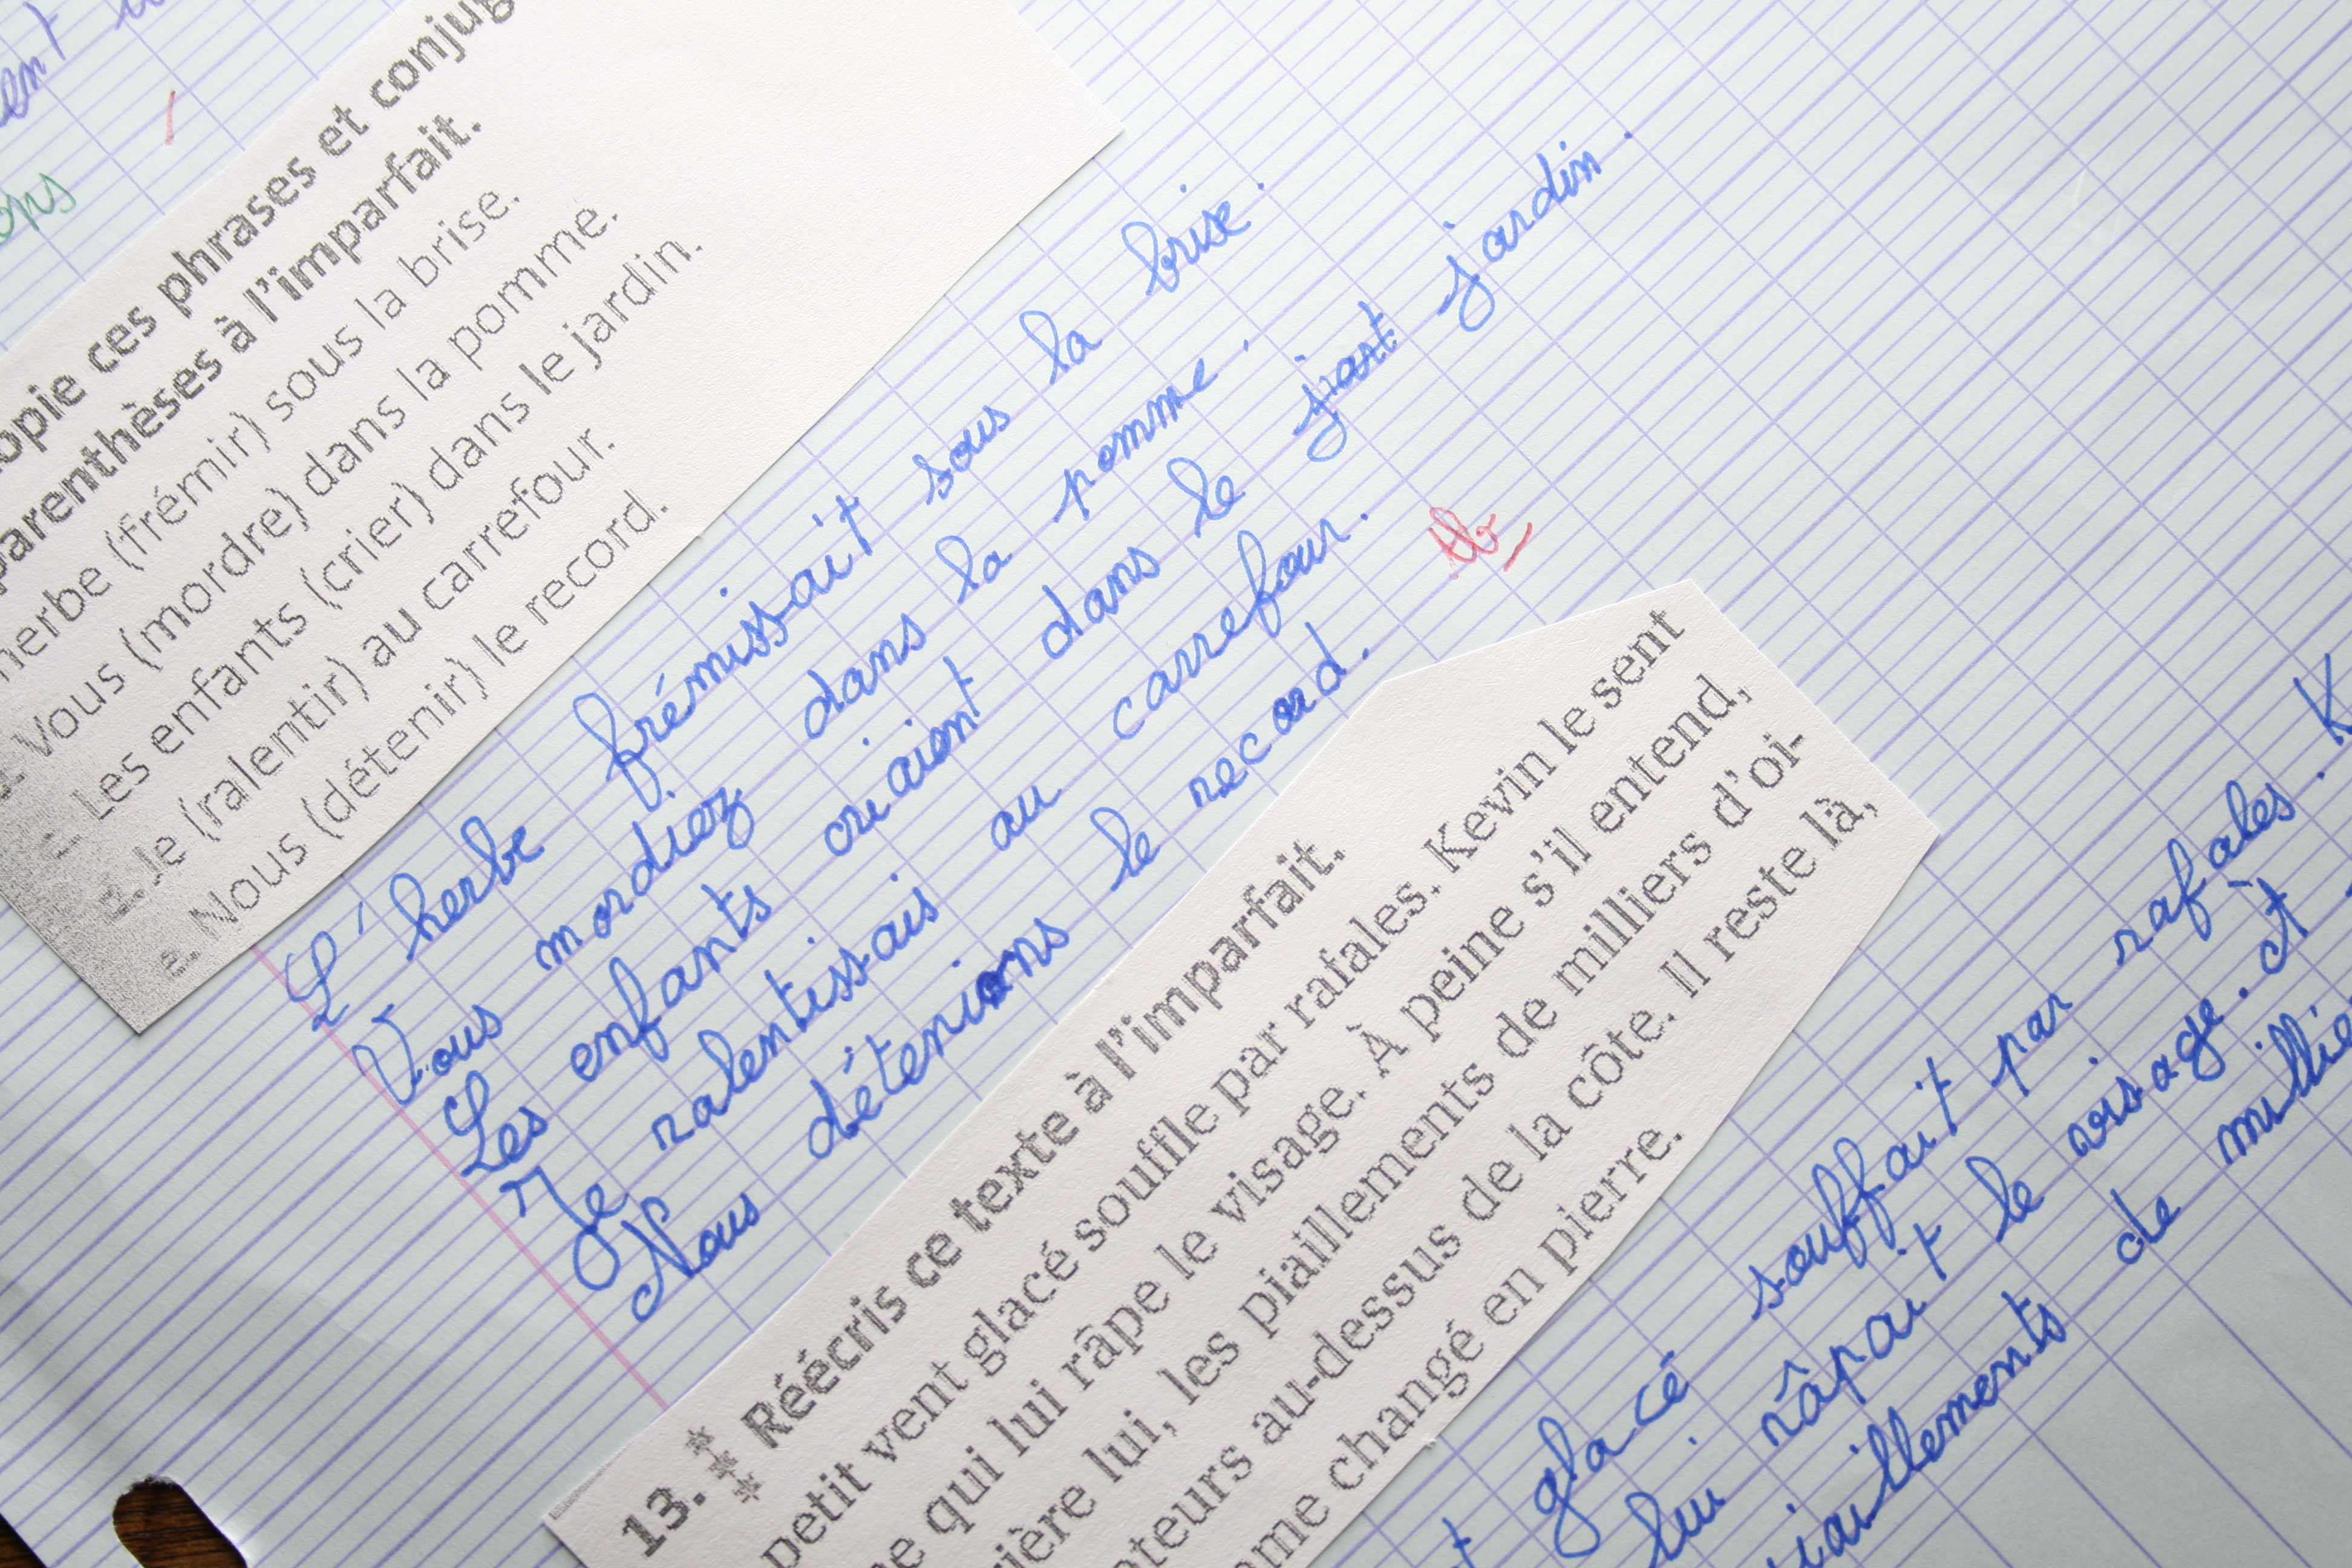 ent
ops
opie ces phrases et conjug
parenthèses à l'imparfait.
herbe (frémir) sous la brise.
Vous (mordre) dans la pomme.
c. Les enfants (crier) dans le jardin.
d. Je (ralentir) au carrefour.
e. Nous (détenir) le record.
L'herbe frémissait sous la brise.
Vous mordiez dans la pomme.
Les enfants criaient dans le jardin.
Je ralentissais au carrefour.
Nous détenions le record.
Tb
13. *** Réécris ce texte à l'imparfait.
petit vent glacé souffle par rafales. Kevin le sent
e qui lui râpe le visage. À peine s'il entend,
ière lui, les piaillements de milliers d'oi-
teurs au-dessus de la côte. Il reste là,
ome changé en pierre.
t glacé souffait par rafales. K
lui râpait le visage. A
iaillements de millie